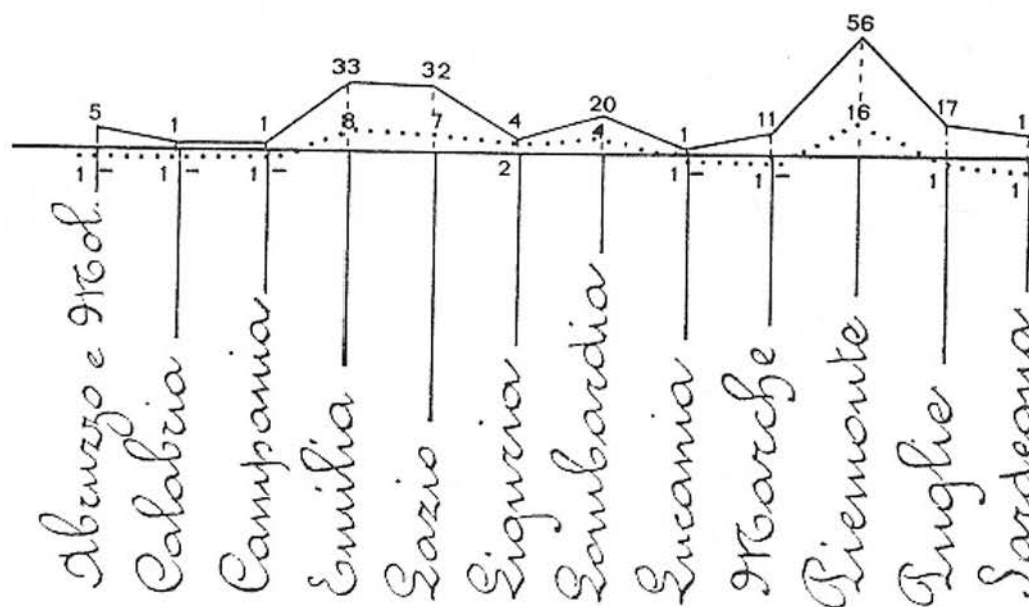 5 1 1 33 32 4 20 1 11 56 17 1
8 7 4 16
1- 1- 1- 2 1- 1- 1 1
Abruzzo e Mol.
Calabria
Campania
Emilia
Lazio
Liguria
Lombardia
Lucania
Marche
Piemonte
Puglie
Sardegna